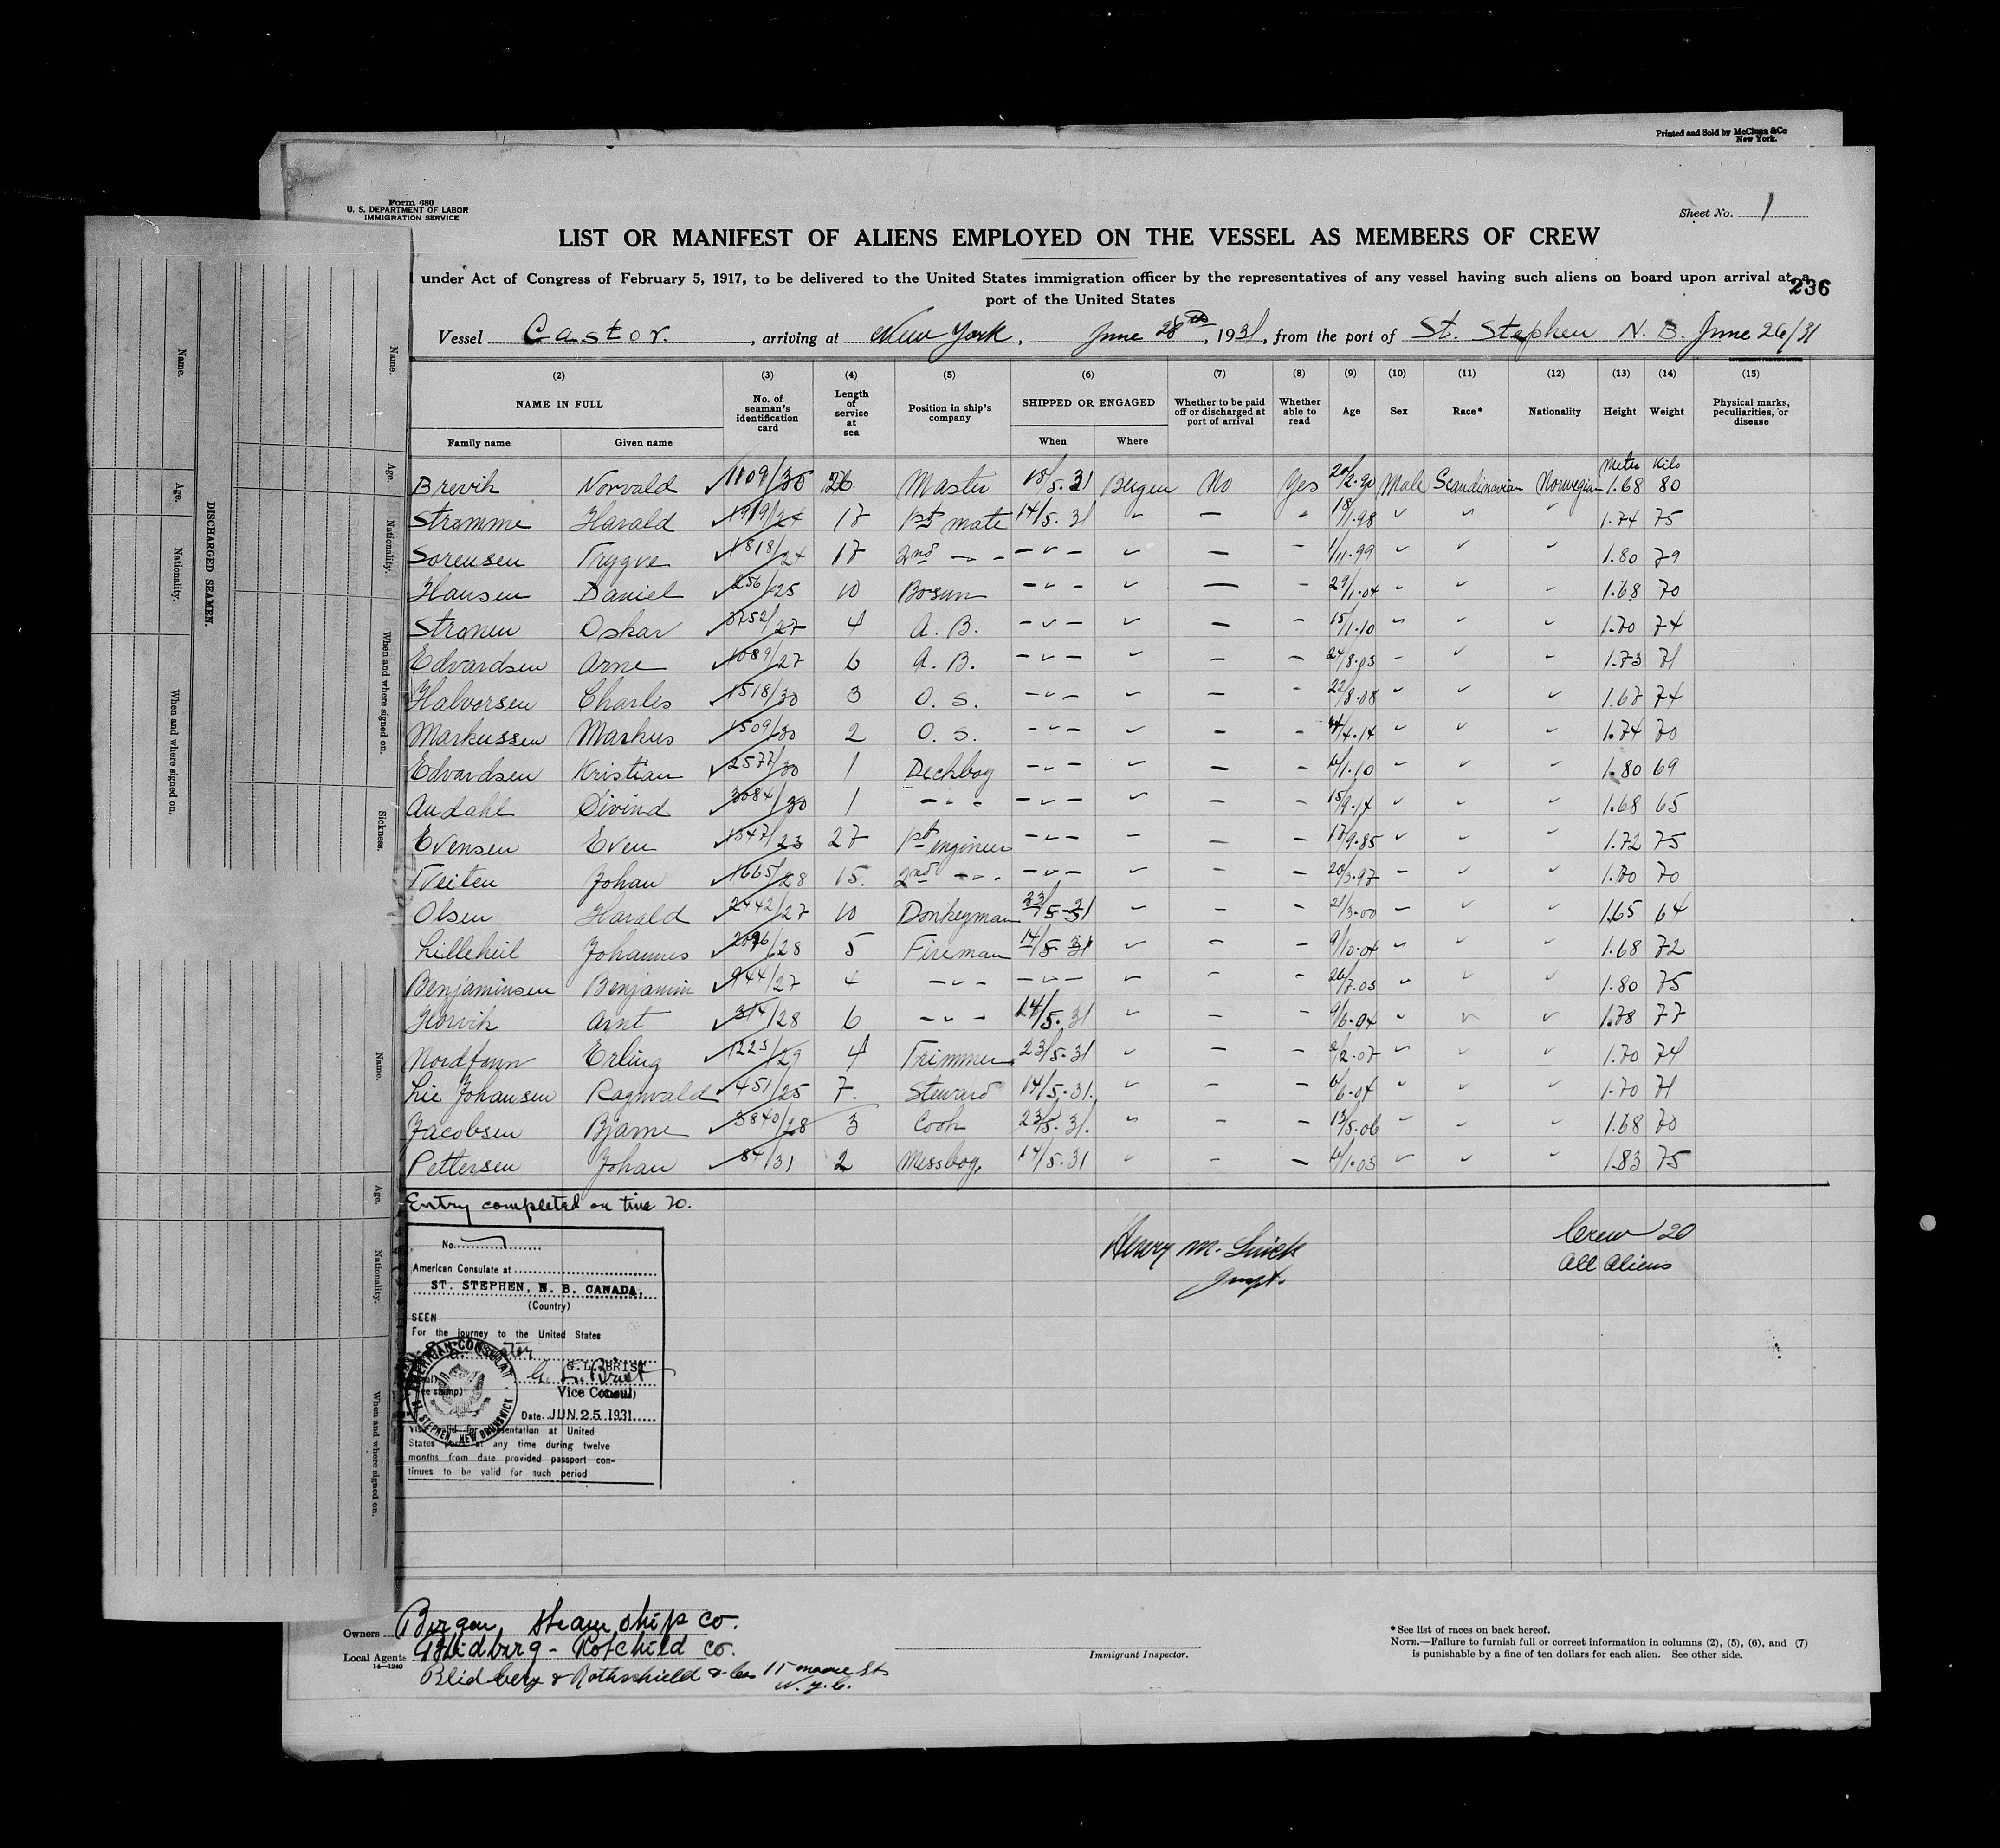 Printed and Sold by McClunn & Co
New York.
Form 680
U. S. DEPARTMENT OF LABOR
IMMIGRATION SERVICE
Sheet No. 1
LIST OR MANIFEST OF ALIENS EMPLOYED ON THE VESSEL AS MEMBERS OF CREW
under Act of Congress of February 5, 1917, to be delivered to the United States immigration officer by the representatives of any vessel having such aliens on board upon arrival at a
port of the United States
236
Vessel Castor. , arriving at New York, June 28th, 1931, from the port of St. Stephen N. B. June 26/31
(2) (3) (4) (5) (6) (7) (8) (9) (10) (11) (12) (13) (14) (15)
NAME IN FULL No. of seaman's identification card Length of service at sea Position in ship's company SHIPPED OR ENGAGED Whether to be paid off or discharged at port of arrival Whether able to read Age Sex Race* Nationality Height Weight Physical marks, peculiarities, or disease
Family name Given name When Where
Meter Kilo
Brevik Norvald 1109/30 26 Master 18/5.31 Bergen No Yes 20/2.90 Male Scandinavian Norwegian 1.68 80
Strømme Harald 1919/24 17 1st mate 14/5.31 18/1.98 1.74 75
Sorensen Trygve 1818/24 17 2nd - - 1/11.99 1.80 79
Hansen Daniel 256/25 10 Bosun 29/1.04 1.68 70
Stronen Oskar 3752/27 4 A. B. 15/1.10 1.70 74
Edvardsen Arne 1089/27 6 A. B. 24/8.03 1.73 71
Halvorsen Charles 1518/30 3 O. S. 22/8.08 1.67 74
Markussen Markus 1509/30 2 O. S. 4.14 1.74 70
Edvardsen Kristian 2577/30 1 Deckboy 1.10 1.80 69
Audahl Oivind 3084/30 1 - - - 15/9.14 1.68 65
Evensen Even 1347/23 27 1st engineer 17/9.85 1.72 75
Tveiten Johan 1665/28 15. 2nd - - - 20/3.97 1.70 70
Olsen Harald 2442/27 10 Donkeyman 23/5.31 21/3.00 1.65 64
Lilleheil Johannes 2096/28 5 Fireman 14/5.31 9/10.04 1.68 72
Benjaminsen Benjamin 944/27 4 - - - 26/7.03 1.80 75
Horvik Arnt 314/28 6 - - - 14/5.31 9/6.04 1.78 77
Nordfonn Erling 1223/29 4 Trimmer 23/5.31 2/2.07 1.70 74
Lie Johansen Ragnvald 451/25 7. Steward 14/5.31. 6.04 1.70 71
Jacobsen Bjarne 3840/28 3 Cook 23/5.31. 13/5.06 1.68 70
Pettersen Johan 84/31 2 Messboy 14/5.31 1.03 1.83 75
Entry completed on line 20.
Henry M.
Inspt.
Crew 20
All Aliens
No.
American Consulate at
ST. STEPHEN, N. B. CANADA.
(Country)
SEEN
For the journey to the United States
G. L. BRIST
Vice Consul
Date JUN. 25. 1931
AMERICAN CONSULATE
ST. STEPHEN, NEW BRUNSWICK
Visa valid for presentation at United
States ports at any time during twelve
months from date provided passport con-
tinues to be valid for such period
Owners Bergen Steam ship co.
Local Agents Blidberg - Rotchild co.
14—1240
Blidberg & Rothschield & Co 15 moore St
N. Y. C.
Immigrant Inspector.
*See list of races on back hereof.
NOTE.—Failure to furnish full or correct information in columns (2), (5), (6), and (7)
is punishable by a fine of ten dollars for each alien. See other side.
DISCHARGED SEAMEN.
Name.
Age.
Nationality.
When and where signed on.
Name.
Age.
Nationality.
When and where signed on.
Sickness.
Name.
Age.
Nationality.
When and where signed on.